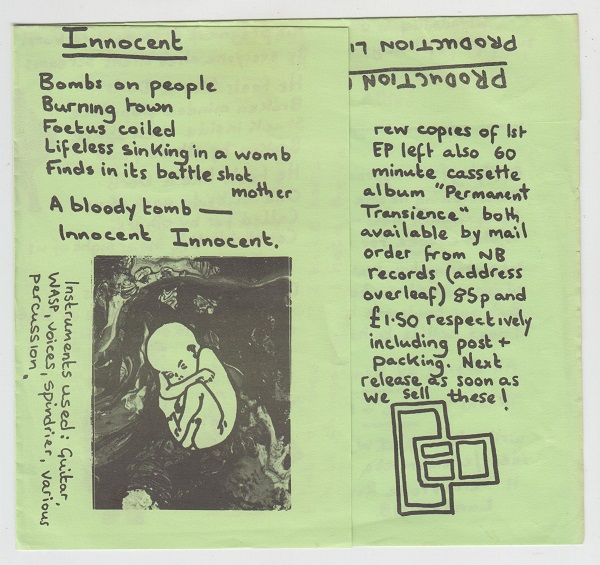 Innocent
Bombs on people
Burning town
Foetus coiled
Lifeless sinking in a womb
Finds in its battle shot
mother
A bloody tomb —
Innocent Innocent.
Instruments used: Guitar,
WASP, voices, spindrier, various
percussion.
PRODUCTION LI
PRODUCTION
few copies of 1st
EP left also 60
minute cassette
album "Permanent
Transience" both
available by mail
order from NB
records (address
overleaf) 85p and
£1.50 respectively
including post +
packing. Next
release as soon as
we sell these!